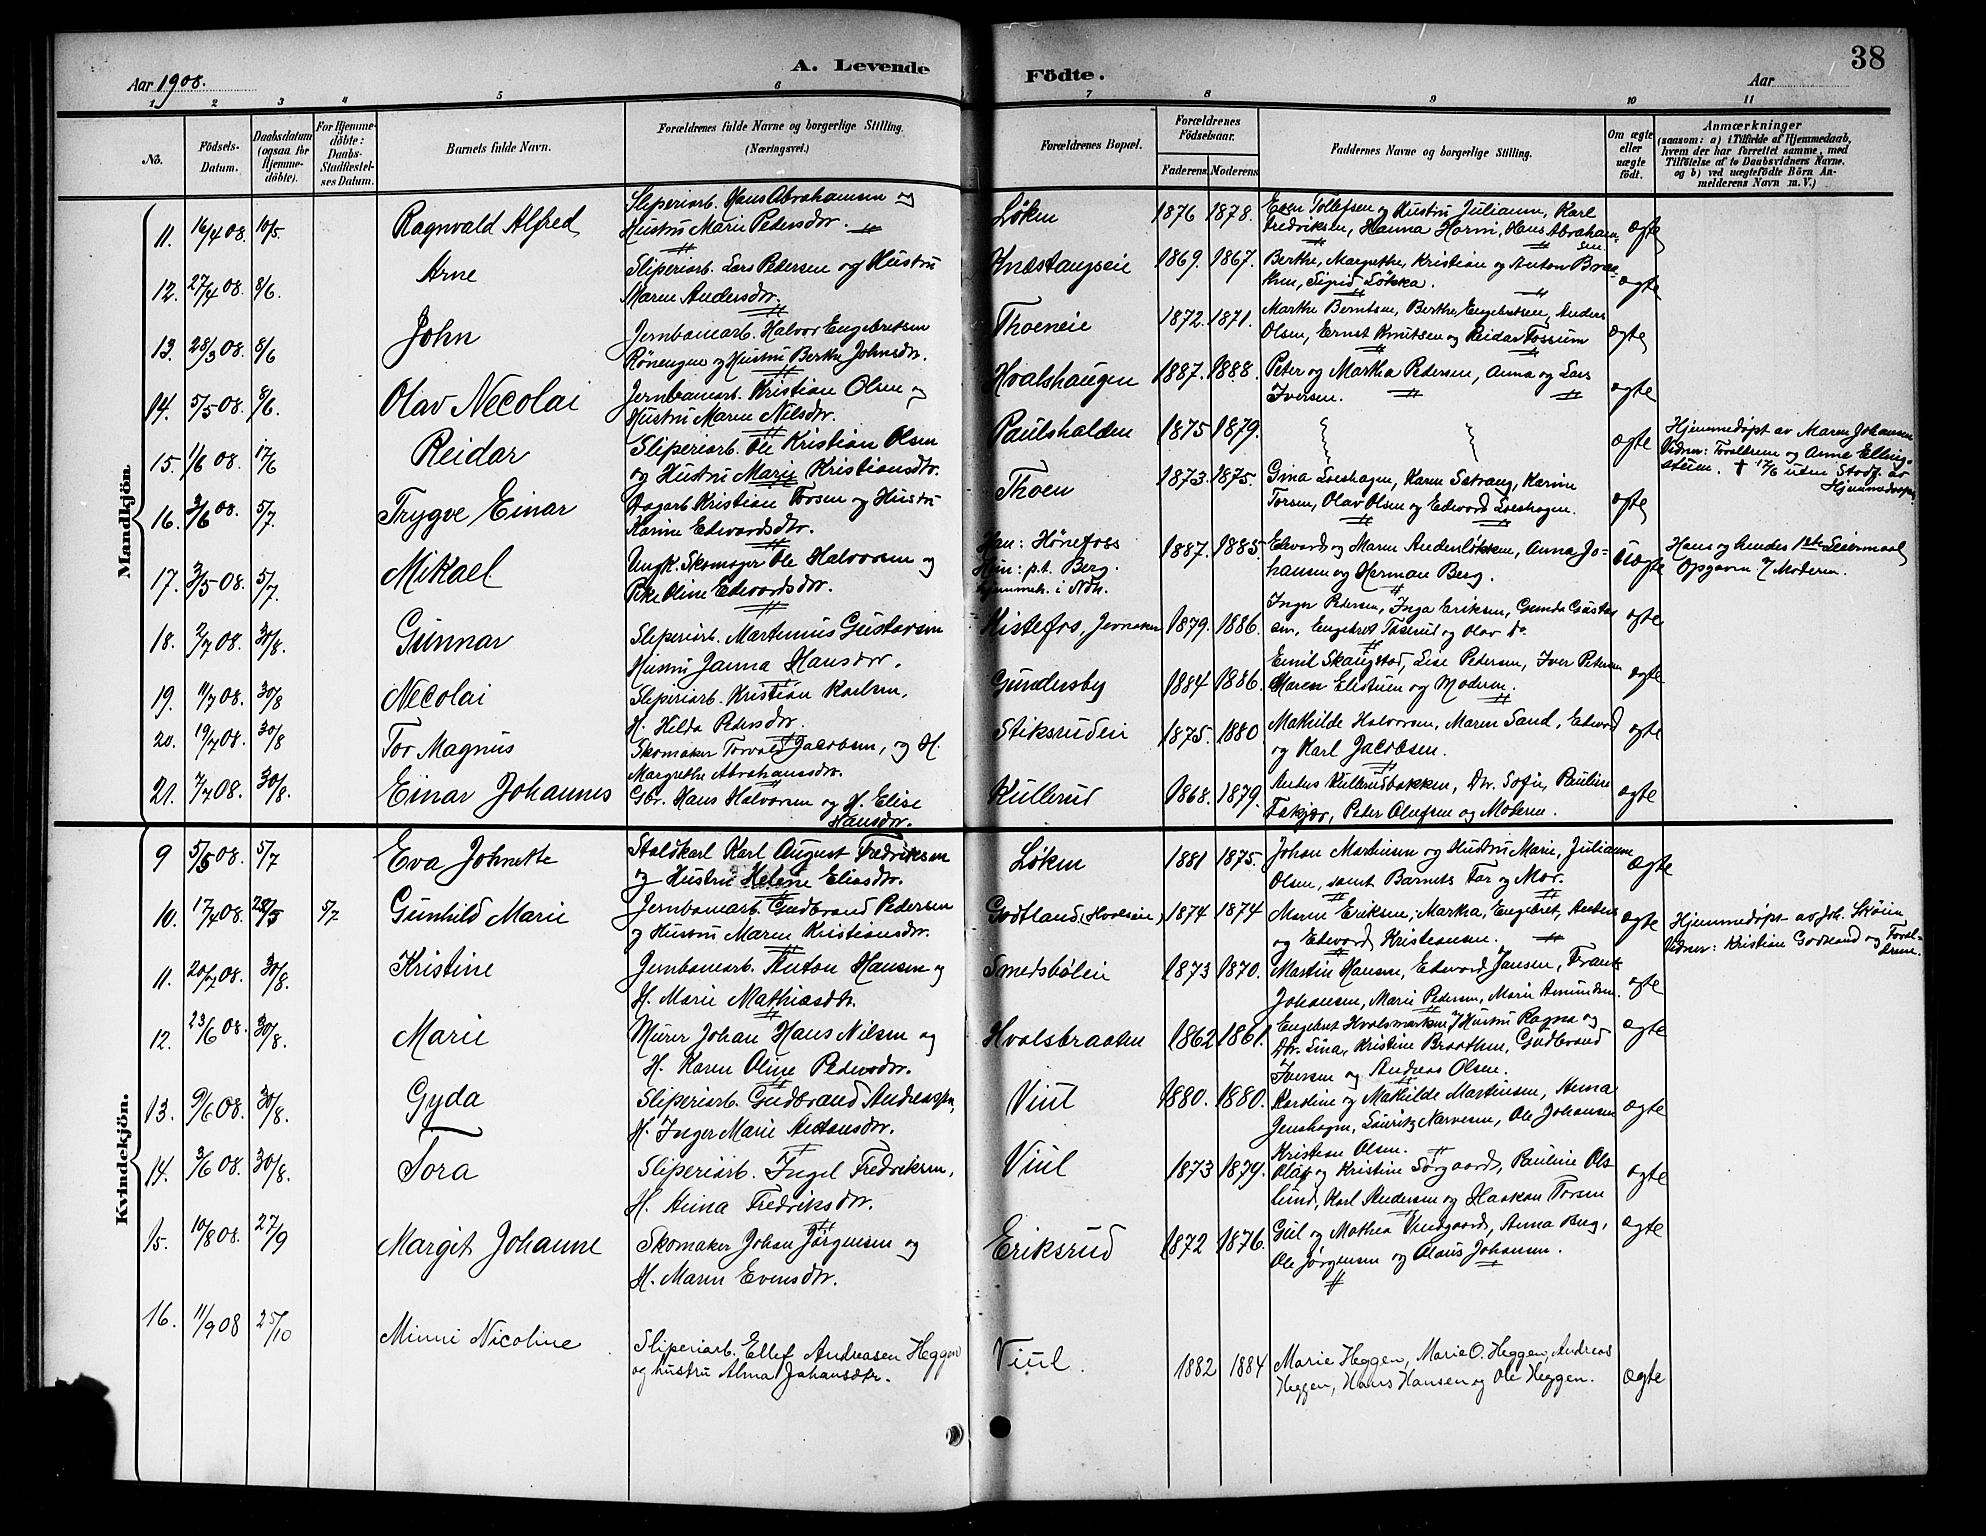 38
A. Levende Födte.
Aar 1908.
Aar
1 2 3 4 5 6 7 8 9 10 11
No.
Födsels-Datum.
Daabsdatum (ogsaa for Hjemmedöbte).
For Hjemmedöbte: Daabs-Stadfæstelses Datum.
Barnets fulde Navn.
Forældrenes fulde Navne og borgerlige Stilling. (Næringsvei.)
Forældrenes Bopæl.
Forældrenes Födselsaar.
Faderens. Moderens.
Faddernes Navne og borgerlige Stilling.
Om ægte eller uægte födt.
Anmærkninger
(saasom: a) i Tilfælde af Hjemmedaab, hvem der har forrettet samme, med Tilföielse af to Daabsvidners Navne, og b) ved uægtefödte Börn Anmelderens Navn m. V.)
Mandkjön
11. 16/4 08. 10/5. Ragnvald Alfred
Sliperiarb. Hans Abrahamsen og
Hustru Marie Pedersdtr.
Løken 1876 1878.
Even Tollefsen og Hustru Julianne, Karl
Fredriksen, Hanna Horni, Hans Abrahamsen.
ægte
12. 27/4 08. 8/6. Arne
Sliperiarb. Lars Pedersen og Hustru
Maren Andersdtr.
Knæstangseie 1869. 1867.
Berthe, Margrethe, Kristian og Anton Braathen, Sigrid Løkka.
ægte
13. 28/3 08. 8/6 John
Jernbanearb. Halvor Engebretsen
Rønengen og Hustru Berthe Johnsdtr.
Thoeneie 1872. 1871.
Marthe Berntsen, Berthe Engebretsen, Anders
Olsen, Ernst Knutsen og Reidar Fossum
ægte
14. 5/5 08. 8/6. Olav Necolai
Jernbanearb. Kristian Olsen og
Hustru Maren Nilsdtr.
Hvalshaugen 1887. 1888.
Peter og Martha Pedersen, Anna og Lars
Iversen.
ægte
15. 1/6 08. 17/6 Reidar
Sliperiarb. Ole Kristian Olsen
og Hustru Marie Kristiansdtr.
Paulshalden 1875 1879.
ægte
Hjemmedøpt av Maren Johansen
Vidner: Forældrene og Anna Ellingstuen. † 17/6 uten Stadf. av
Hjemmedaapen
16. 3/6 08. 5/7. Trygve Einar
Dagarb. Kristian Torsen og Hustru
Karine Edwardsdtr.
Thoen 1873. 1875.
Gina Loeshagen, Karen Sætrang, Karine
Torsen, Olav Olsen og Edward Loeshagen.
ægte
17. 3/5 08. 5/7. Mikael
Ungk. Skomager Ole Halvorsen og
Pike Oline Edwardsdtr.
Han: Hönefoss
Hun: p.t. Berg.
hjemmeh. i Ndh.
1887. 1885.
Edward og Maren Anderløkken, Anna Johansen og Herman Berg.
Uægte
Hans og hendes 1ste Leiermaal
Opgaven v/ Moderen.
18. 2/7 08. 30/8. Gunnar
Sliperiarb. Martinius Gustavsen
Hustru Janna Hansdtr.
Kistefos, Jevnaker 1879. 1886.
Inger Pedersen, Inga Eriksen, Gunda Gustavsen, Engebret Tosrud og Olav do.
ægte
19. 11/7 08. 30/8 Necolai
Sliperiarb. Kristian Karlsen,
H. Hilda Pedersdtr.
Gundersby 1884 1886.
Emil Skaugstad, Lise Petersen, Iver Petersen
Maren Elistuen og Moderen.
ægte
20. 19/7 08. 30/8 Tor Magnus
Skomaker Torvald Jacobsen, og H.
Margrethe Abrahamsdtr.
Stiksrudeie 1875. 1880
Mathilde Halvorsen, Maren Sand, Edward
og Karl Jacobsen.
ægte
21. 7/7 08. 30/8. Einar Johannes
Gbr. Hans Halvorsen og H. Elise
Hansdtr.
Kullerud 1868. 1879.
Anders Kullerudbakken, Dtr. Sofie, Pauline
Fækjær, Peter Olufsen og Moderen.
ægte
Kvindekjön.
9 5/5 08. 5/7 Eva Johnette
Staldkarl Karl August Fredriksen
og Hustru Helene Eliasdtr.
Løken 1881 1875.
Johan Martinsen og Hustru Marie, Julianne
Olsen, samt Barnets Far og Mor.
ægte
10. 17/4 08. 28/5 5/7 Gunhild Marie
Jernbanearb. Gudbrand Pedersen
og Hustru Maren Kristiansdtr.
Godtland (Hvalseie) 1874 1874
Maren Eriksen, Martha, Engebret, Anders
og Edward Kristiansen.
ægte
Hjemmedøpt av Joh. Skøien
Vidner: Kristian Godtland og Forældrene.
11. 20/7 08. 30/8. Kristine
Jernbanearb. Anton Hansen og
H. Marie Mathiasdtr.
Smedsböleie 1873 1870.
Martin Hansen, Edward Jansen, Frants
Johansen, Marie Pedersen, Marie Amundsen.
ægte
12. 23/6 08. 30/8. Marie
Murer Johan Hans Nilsen og
H. Karen Oline Pedersdtr.
Hvalsbraaten 1862 1861.
Engebret Hvalsmarken, Hustru Ragna og
Dtr. Lina, Kristine Braathen, Gudbrand
Iversen og Andreas Olsen.
ægte
13. 9/6 08. 30/8. Gyda
Sliperiarb. Gudbrand Andreassen,
H. Inger Marie Antonsdtr.
Viul 1880. 1880.
Karoline og Mathilde Martinsen, Anna
Jenshagen, Lauritz Narvesen, Ole Johansen
ægte
14. 3/6 08. 30/8. Tora
Sliperiarb. Ingel Fredriksen,
H. Anna Fredriksdtr.
Viul 1873 1879.
Kristian Olsen.
Olaf og Kristine Sørgaard, Pauline Olslund, Karl Andersen og Haakon Torsen
ægte
15. 10/8 08. 27/9 Margit Johanne
Skomaker Johan Jørgensen og
H. Maren Evensdtr.
Eriksrud 1872 1876.
Gul og Mathea Vindgaard, Anna Berg,
Ole Jørgensen og Olaus Johansen.
ægte
16. 11/9 08 25/10 Minni Nicoline
Sliperiarb. Ellef Andreasen Heggen
og hustru Alma Johansdtr.
Viul. 1882 1884
Marie Heggen, Marie O. Heggen, Andreas
Heggen, Hans Hansen og Ole Heggen.
ægte